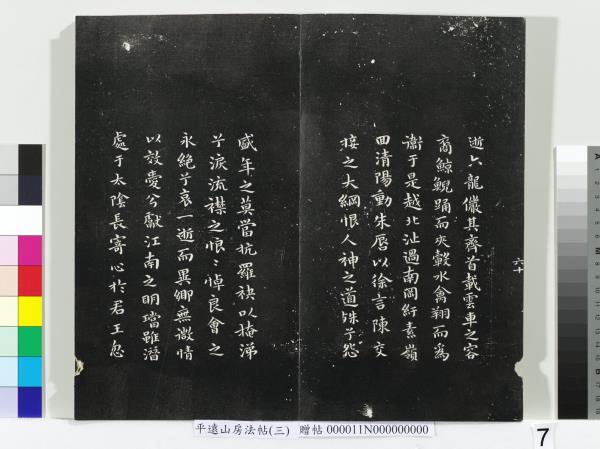 逝六龍儼其齊首載雲車之容
裔鯨鯢踊而夾轂水禽翔而為
衞于是越北沚過南岡紆素嶺
回清陽動朱唇以徐言陳交
接之大綱恨人神之道殊兮怨
盛年之莫當抗羅袂以掩涕
兮淚流襟之悢〻悼良會之
永絕兮哀一逝而異鄉無微情
以效愛兮獻江南之明璫雖潛
處于太陰長寄心於君王忽
六十
平遠山房法帖(三) 贈帖 000011N000000000
7